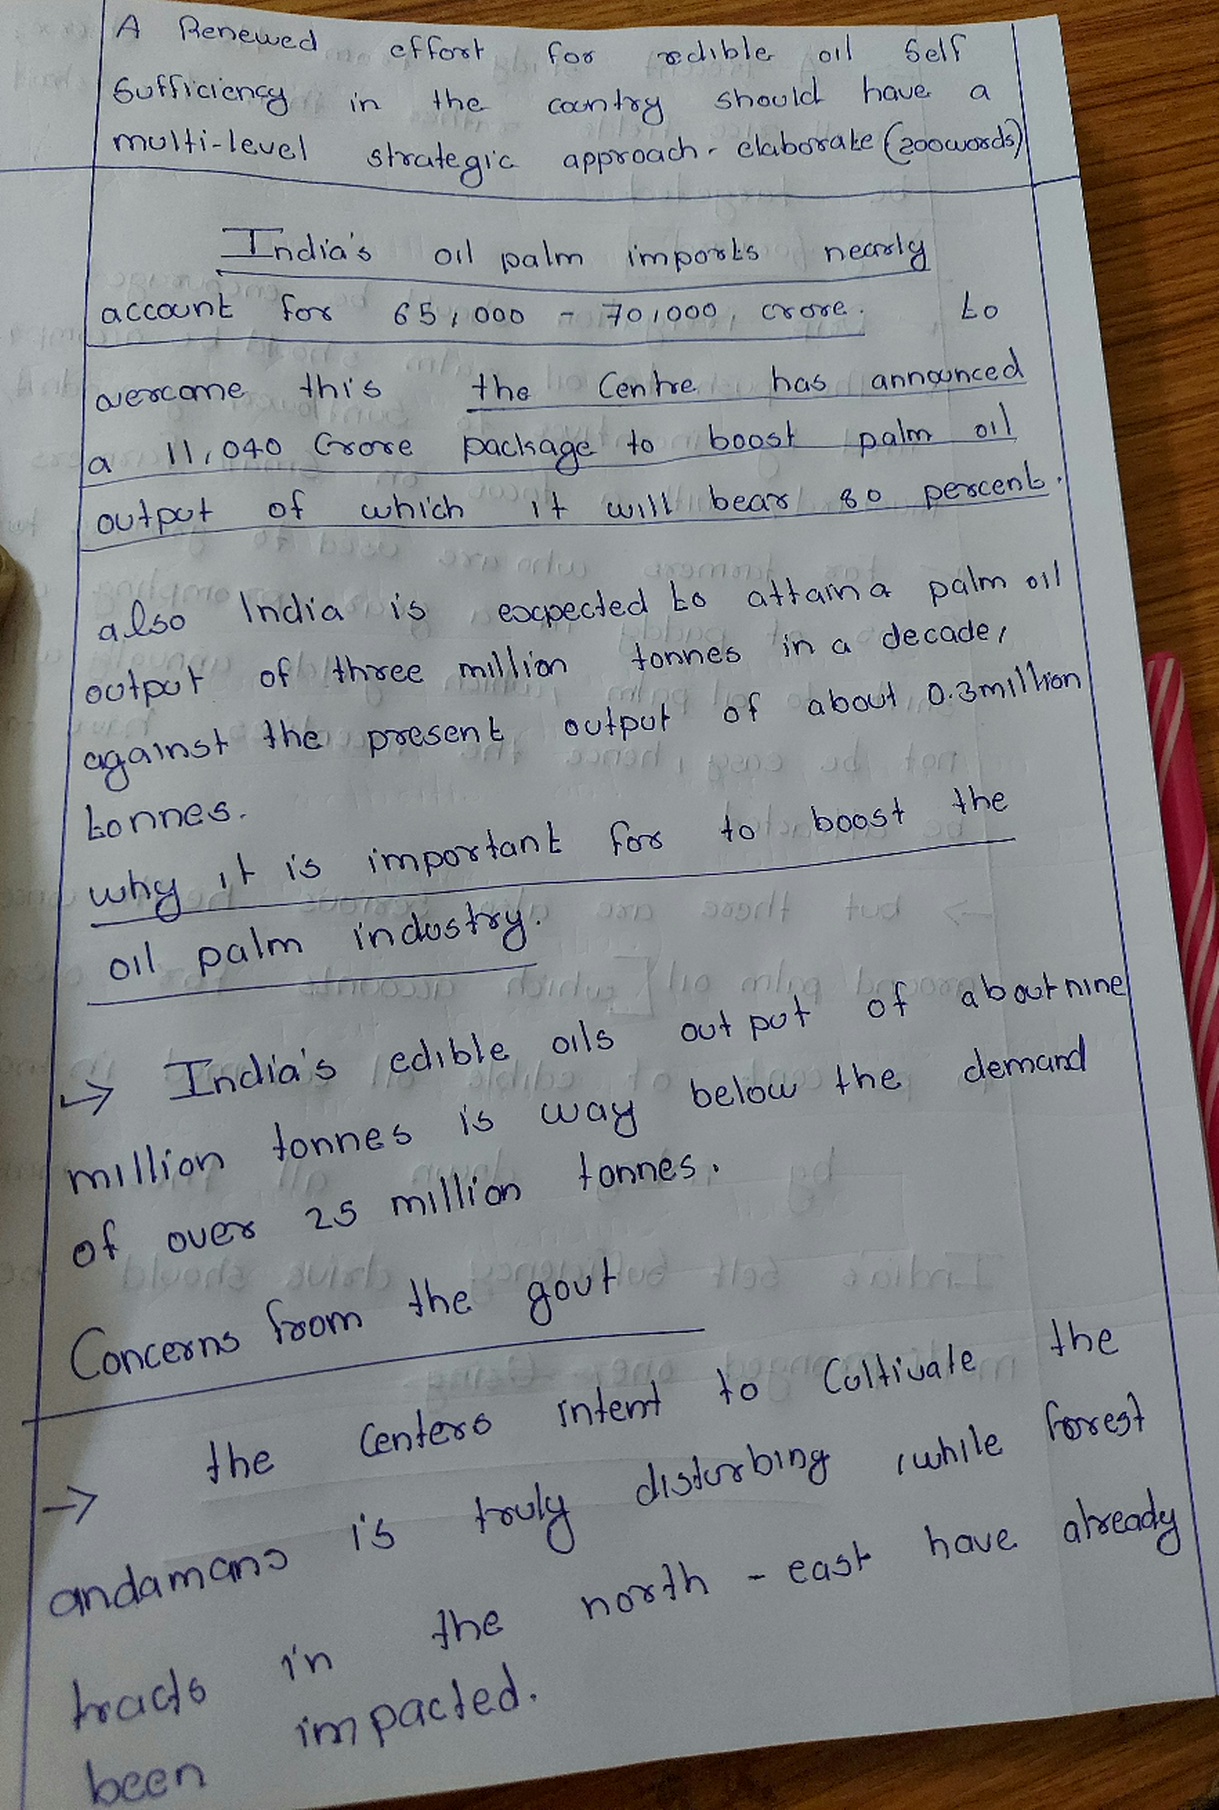 A Renewed effort for edible oil Self
Sufficiency in the country should have a
multi-level strategic approach. elaborate (200words)
India's oil palm imports nearly
account for 65,000 - 70,000 crore. to
overcome this the Centre has announced
a 11,040 Crore package to boost palm oil
output of which it will bear 80 percent.
also India is expected to attain a palm oil
output of three million tonnes in a decade,
against the present output of about 0.3million
tonnes.
why it is important for to boost the
oil palm industry.
→ India's edible oils output of about nine
million tonnes is way below the demand
of over 25 million tonnes.
Concerns from the govt
→ the Centers intent to Cultivate the
andamans is truly disturbing, while forest
tracts in the north-east have already
been impacted.